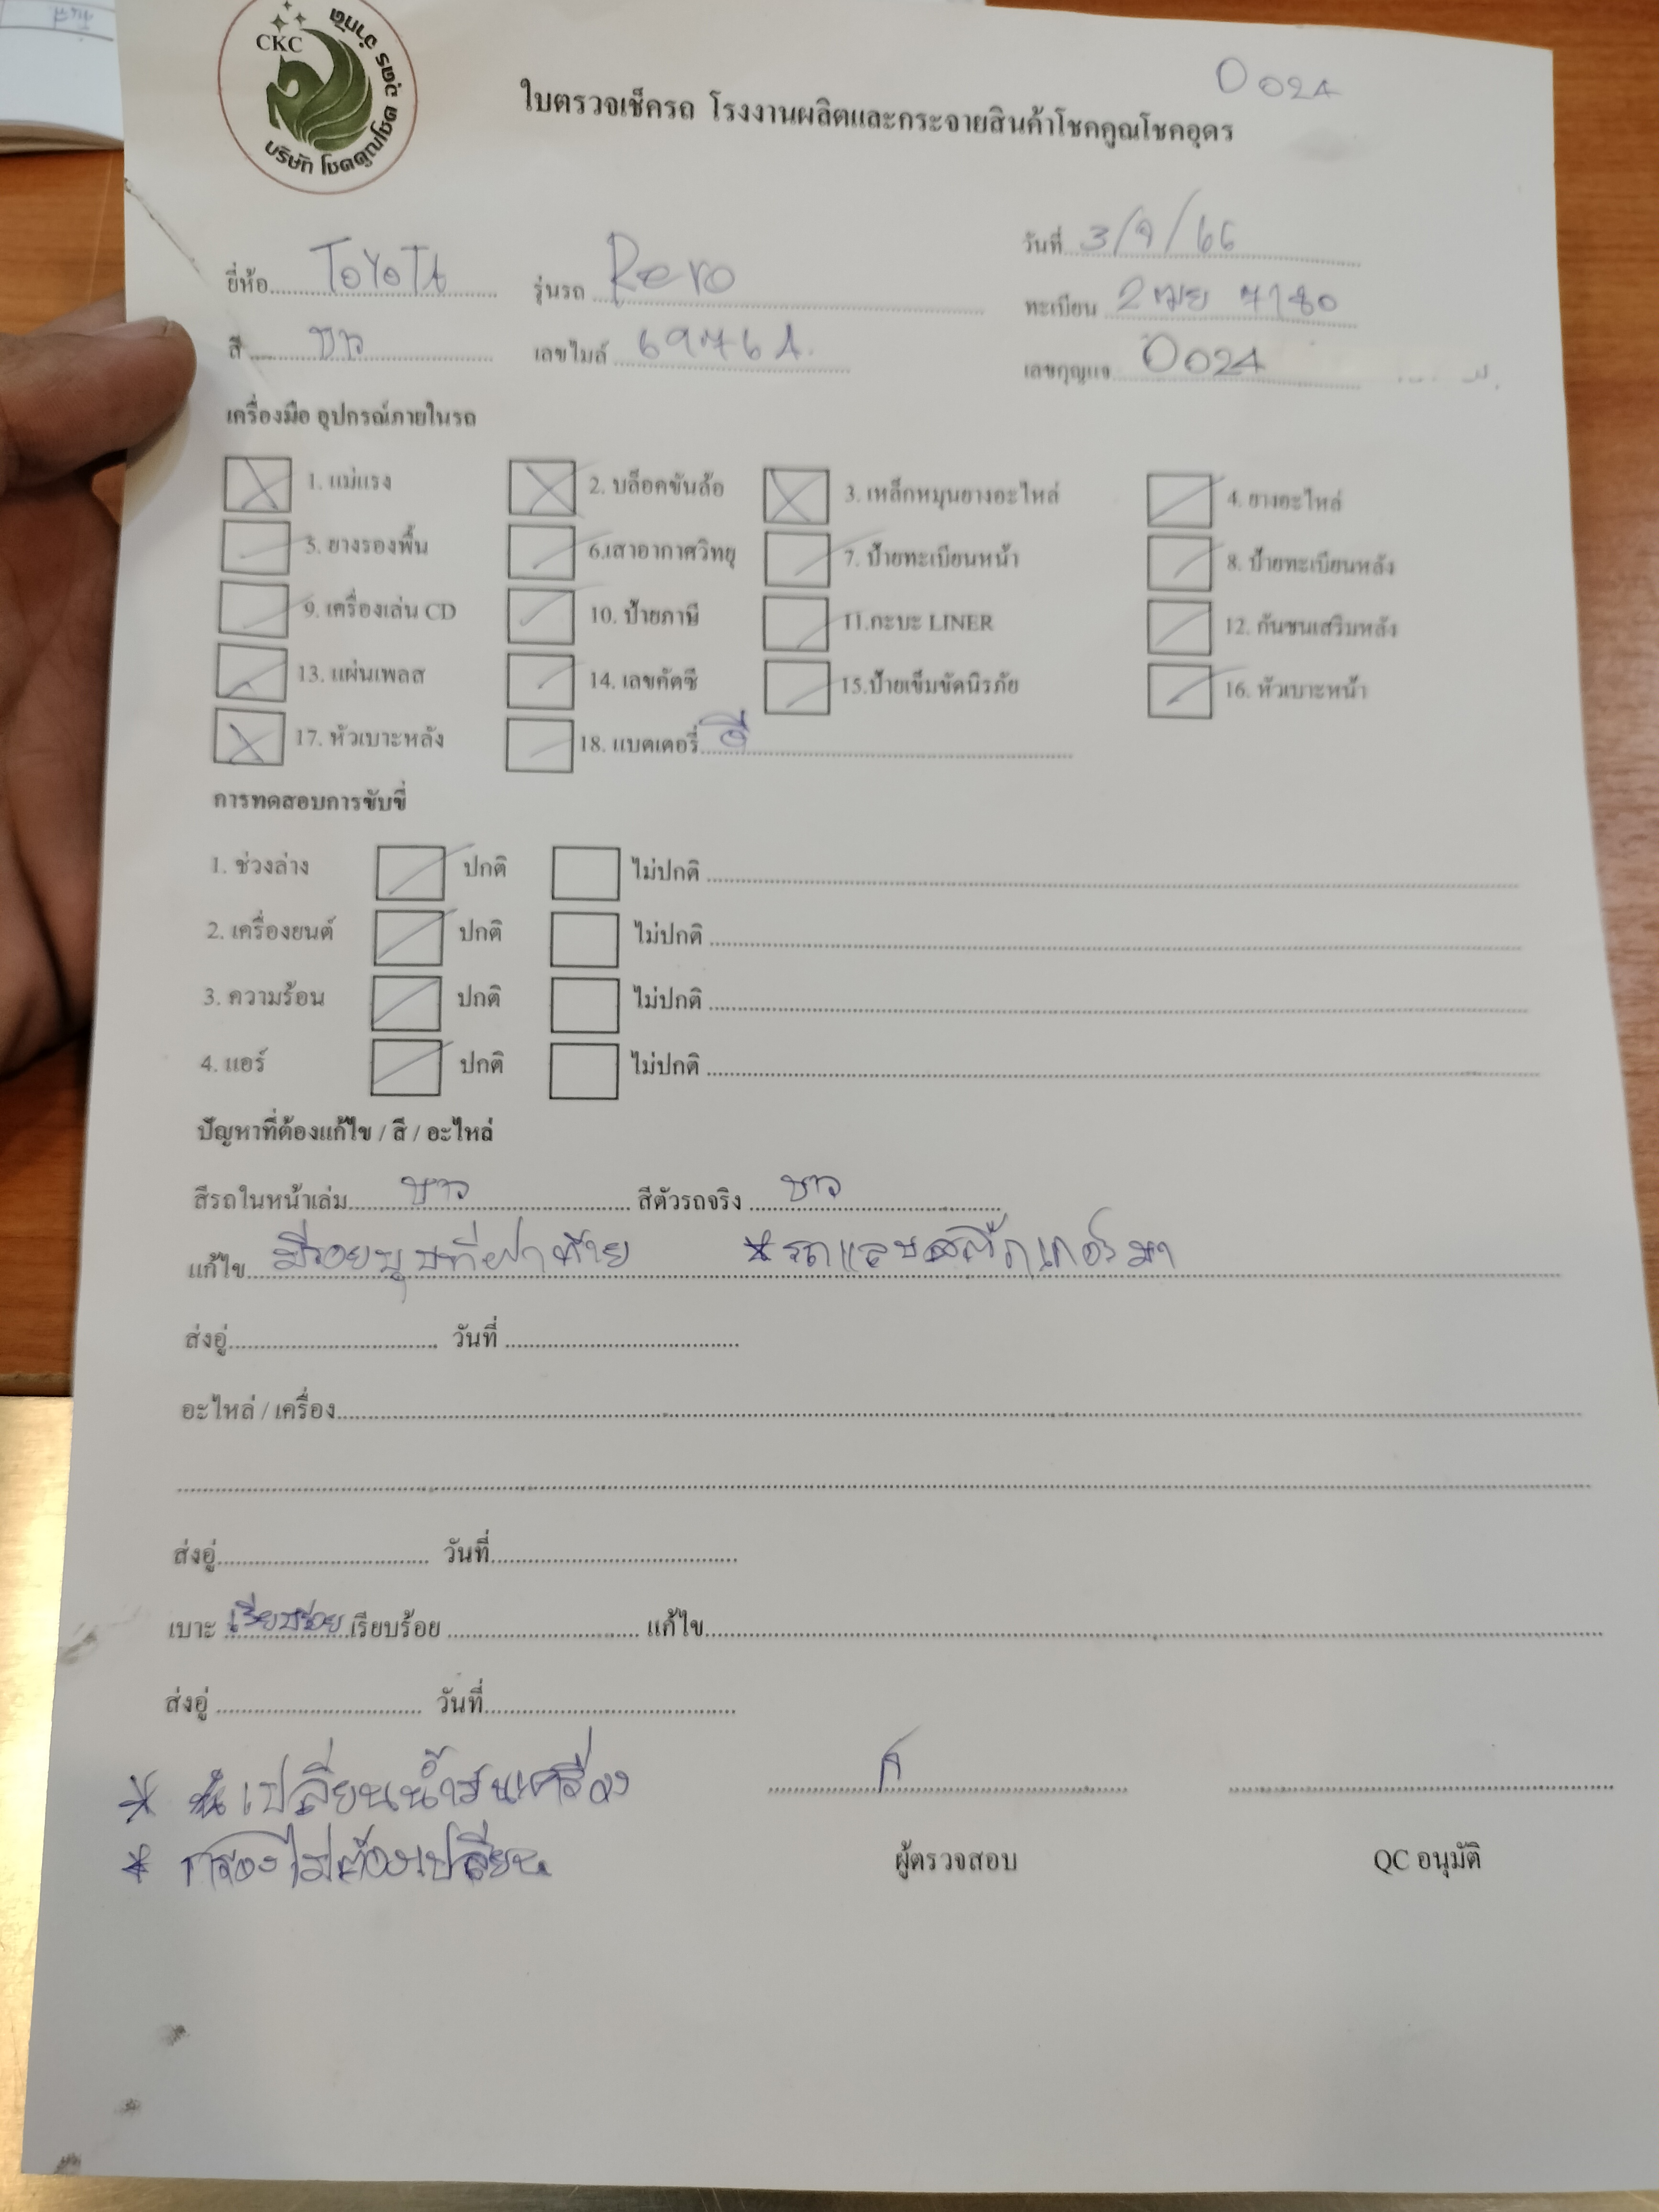 CKC
บริษัท โชคคูณโชค อุดร จำกัด
0024
ใบตรวจเช็ครถ โรงงานผลิตและกระจายสินค้าโชคคูณโชคอุดร
วันที่ 3/9/66
ยี่ห้อ TOYOTA รุ่นรถ Revo
ทะเบียน 2ฒย 7180
สี ขาว เลขไมล์
เลขกุญแจ 0024
เครื่องมือ อุปกรณ์ภายในรถ
1. แม่แรง 2. บล็อคขันล้อ 3. เหล็กหมุนยางอะไหล่ 4. ยางอะไหล่
5. ยางรองพื้น 6.เสาอากาศวิทยุ 7. ป้ายทะเบียนหน้า 8. ป้ายทะเบียนหลัง
9. เครื่องเล่น CD 10. ป้ายภาษี 11.กะบะ LINER 12. กันชนเสริมหลัง
13. แผ่นเพลส 14. เลขคัตซี 15.ป้ายเข็มขัดนิรภัย 16. หัวเบาะหน้า
17. หัวเบาะหลัง 18. แบตเตอรี่ ดี
การทดสอบการขับขี่
1. ช่วงล่าง ปกติ ไม่ปกติ
2. เครื่องยนต์ ปกติ ไม่ปกติ
3. ความร้อน ปกติ ไม่ปกติ
4. แอร์ ปกติ ไม่ปกติ
ปัญหาที่ต้องแก้ไข / สี / อะไหล่
สีรถในหน้าเล่ม ขาว สีตัวรถจริง ขาว
แก้ไข มีรอยบุบที่ฝาท้าย *รถแลบสติ๊กเกอร์มา
ส่งอู่ วันที่
อะไหล่ / เครื่อง
ส่งอู่ วันที่
เบาะ เรียบร้อย เรียบร้อย แก้ไข
ส่งอู่ วันที่
* เปลี่ยนน้ำมันเครื่อง
* กรองไม่ต้องเปลี่ยน
ผู้ตรวจสอบ QC อนุมัติ